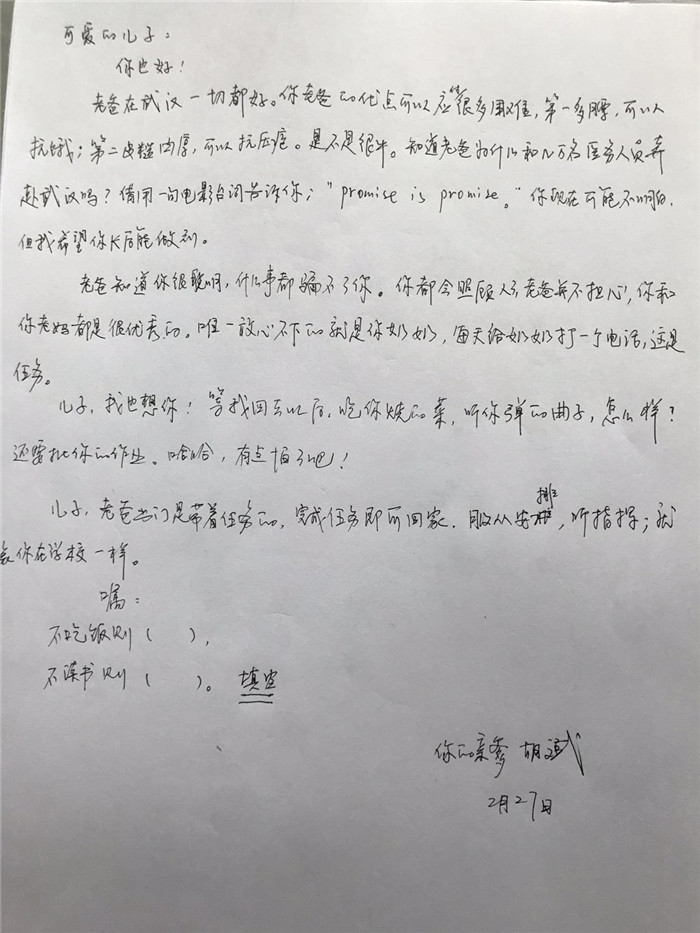 可爱的儿子：
你也好！
老爸在武汉一切都好。你老爸的优点可以应付很多困难，第一多膘，可以
抗饿；第二皮糙肉厚，可以抗压疮。是不是很牛。知道老爸为什么和几万名医务人员奔
赴武汉吗？借用一句电影台词告诉你；"promise is promise。"你现在可能不明白，
但我希望你长后能做到。
老爸知道你很聪明，什么事都骗不了你。你都会照顾人了老爸并不担心，你和
你老妈都是很优秀的。唯一放心不下的就是你奶奶，每天给奶奶打一个电话，这是
任务。
儿子，我也想你！等我回去以后，吃你烧的菜，听你弹的曲子，怎么样？
还要批你的作业。哈哈，有点怕了吧！
儿子，老爸出门是带着任务的，完成任务即可回家。服从安排，听指挥；就
象你在学校一样。
嘱：
不吃饭则（ ），
不读书则（ ）。填空
你的亲爹 胡斌
2月27日